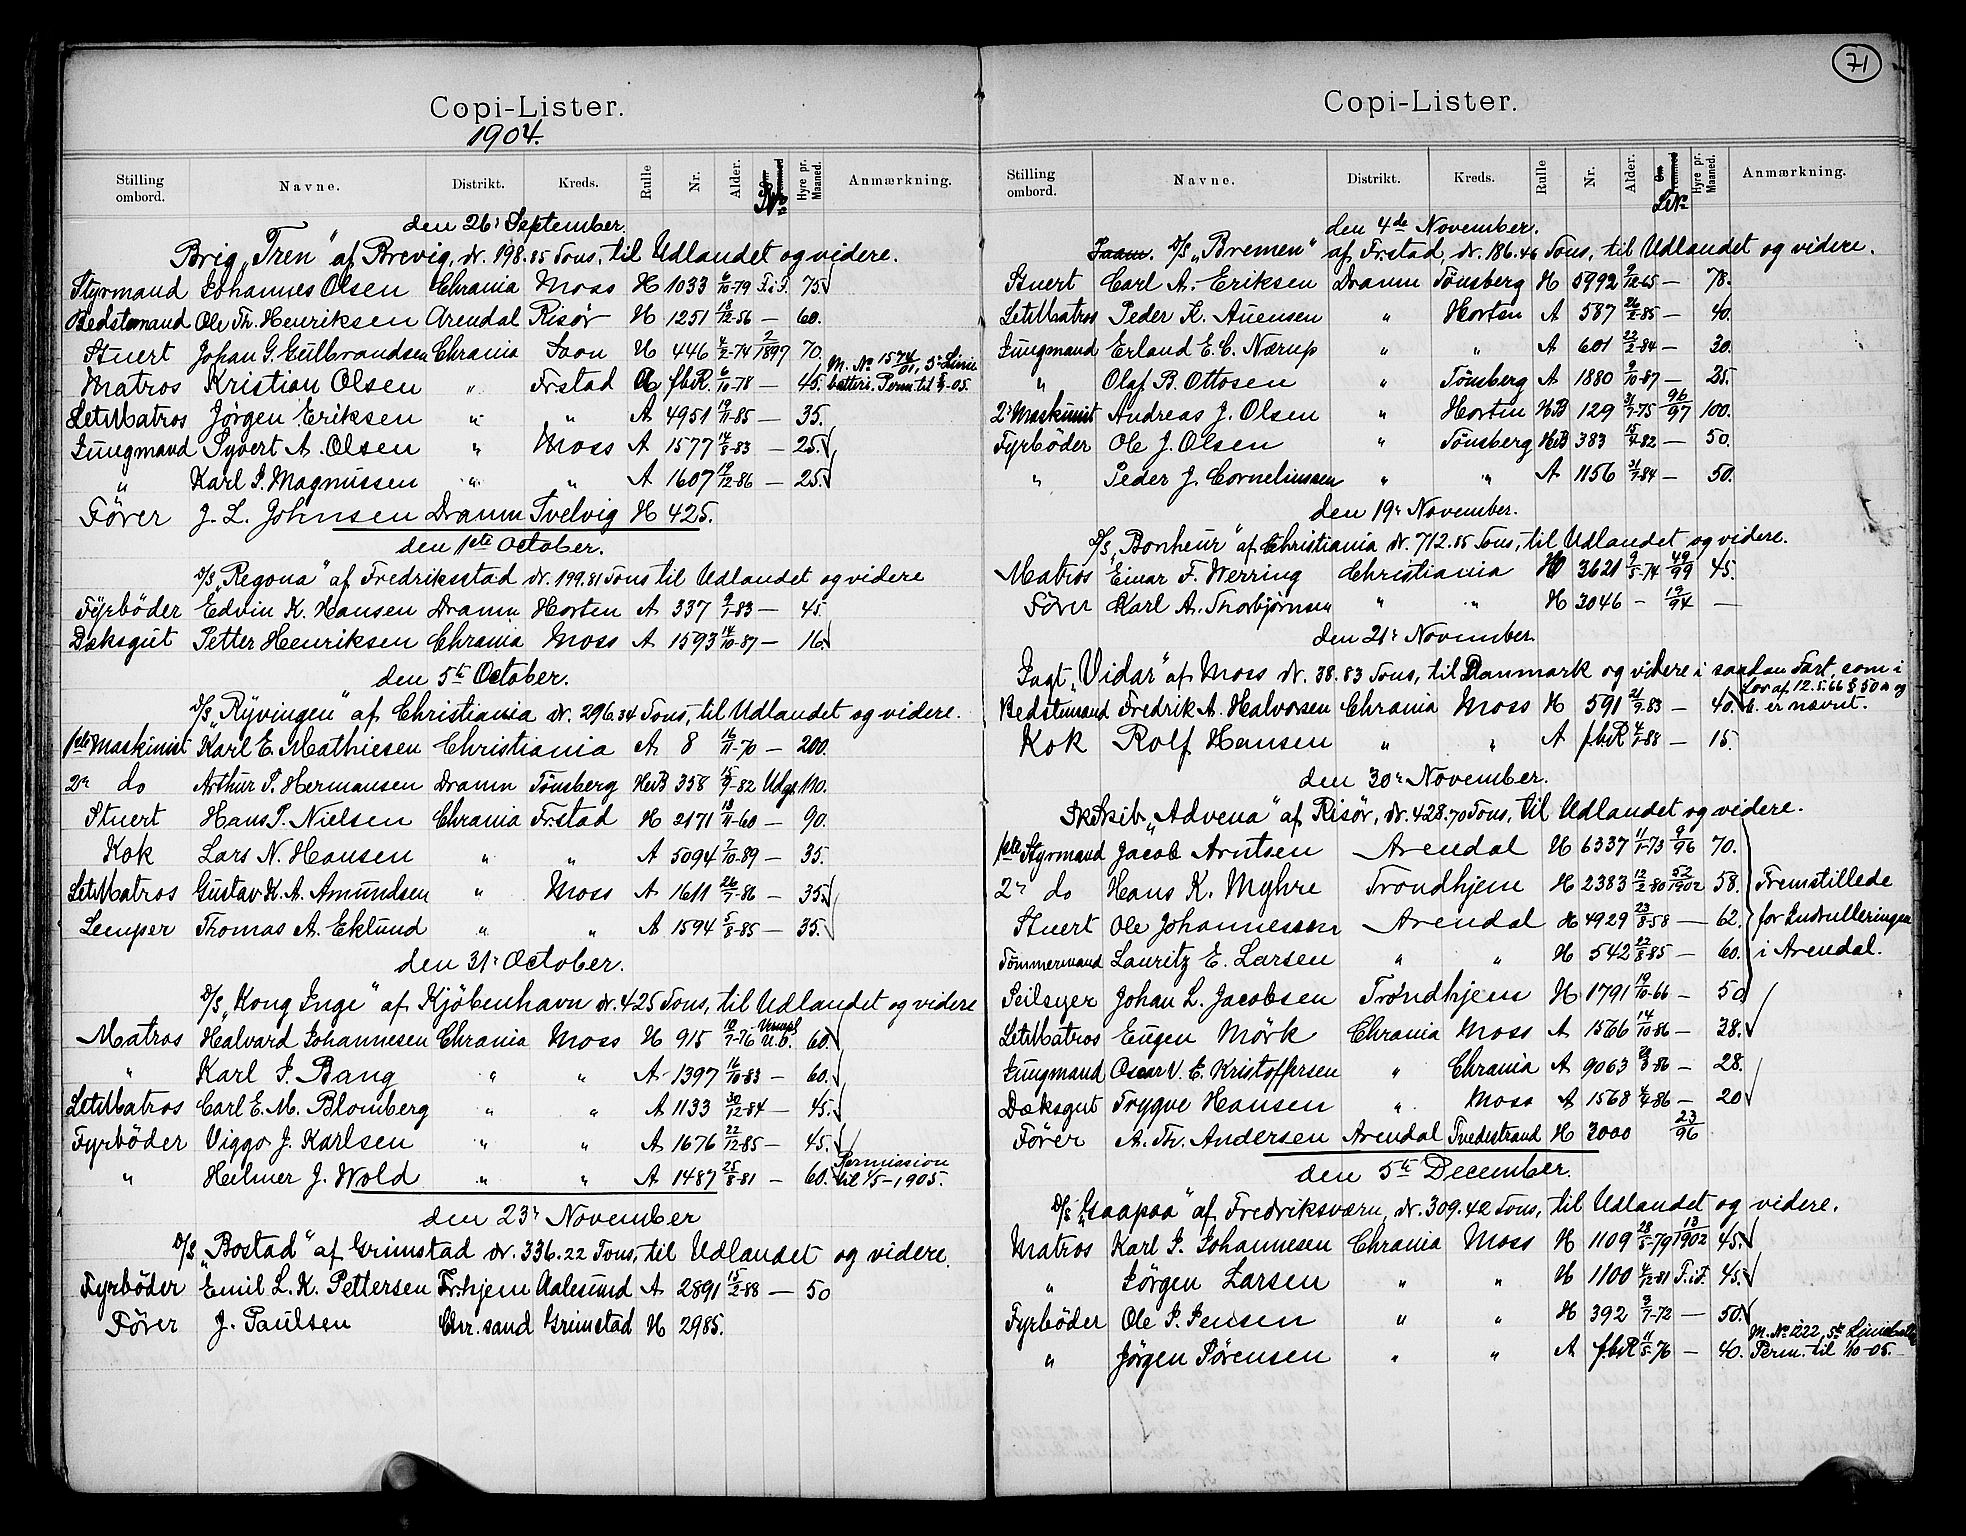 71
Copi-Lister.
1904.
Stilling ombord. Navne. Distrikt. Kreds. Rulle Nr. Alder. Hyre pr. Maaned. Anmærkning.
den 26' September.
Brig "Tren" af Brevig, dr. 198.85 Tons, til Udlandet og videre.
Styrmand Johannes Olsen Chrania Moss H 1033 6/10-79 F.i.F. 75
Bedstemand Ole Th. Henriksen Arendal Risör H 1251 18/12-56 — 60.
Stuert Johan G. Gulbrandsen Chrania Soon H 446 4/2-74 2/1897 70.
Matros Kristian Olsen " Fr.stad A fbR. 6/10-78 — 45. M. No 1574/01, 3' Linie batteri. Perm til 1/5-05.
LetMatros Jørgen Eriksen " " A 4951 19/11-85 — 35.
Jungmand Syvert A. Olsen " Moss A 1577 14/8-83 — 25.
" Karl S. Magnussen " " A 1607 19/12-86 — 25
Förer J. L. Johnsen Dramn Svelvig H 425.
den 1ste October.
D/S "Regona" af Fredriksstad dr. 199.81 Tons til Udlandet og videre
Fyrböder Edvin K. Hansen Dramn Horten A 337 9/1-83 — 45.
Dæksgut Petter Henriksen Chrania Moss A 1593 14/10-87 — 16.
den 5te October.
D/S "Ryvingen" af Christiania dr. 296.34 Tons, til Udlandet og videre.
1ste Maskinist Karl E. Mathiesen Christiania A 8 16/11-70 — 200.
2' do Arthur S. Hermansen Dramn Tönsberg HB 358 15/9-82 Udg. 110.
Stuert Hans P. Nielsen Chrania Fr.stad H 2171 13/11-60 — 90.
Kok Lars N. Hansen " " A 5094 7/10-89 — 35.
LetMatros Gustav K. A. Amundsen " Moss A 1611 26/7-86 — 35.
Lemper Thomas A. Eklund " " A 1594 5/8-85 — 35.
den 31' October.
D/S "Kong Inge" af Kjöbenhavn dr. 425 Tons, til Udlandet og videre
Matros Halvard Johannesen Chrania Moss H 915 10/7-76 Vernepl. U.B. 60
" Karl S. Bang " " A 1397 16/10-83 — 60.
LetMatros Carl E. M. Blomberg " " A 1133 30/12-84 — 45.
Fyrböder Viggo J. Karlsen " " A 1676 22/12-85 — 45.
" Helmer J. Wold " " A 1487 25/8-81 — 60. Permission til 1/5-1905.
den 23' November
D/S "Bostad" af Grimstad dr. 336.22 Tons, til Udlandet og videre.
Fyrböder Emil L. K. Pettersen Tr.hjem Aalesund A 2891 15/2-88 — 50
Förer J. Paulsen Chr.sand Grimstad H 2985.
Copi-Lister.
Stilling ombord. Navne. Distrikt. Kreds. Rulle Nr. Alder. Hyre pr. Maaned. Anmærkning.
den 4de November.
D/S "Bremen" af Fr.stad, dr. 186.46 Tons, til Udlandet og videre.
Stuert Carl A. Eriksen Dramn Tönsberg H 5992 9/12-65 — 78.
LetMatros Peder K. Auensen " Horten A 587 26/2-85 — 40.
Jungmand Erland E. C. Nærup " " A 601 22/2-84 — 30.
" Olaf B. Ottosen " Tönsberg A 1880 9/10-87 — 25.
2' Maskinist Andreas J. Olsen " Horten HB 129 31/7-75 96/97 100.
Fyrböder Ole J. Olsen " Tönsberg HB 383 15/4-82 — 50.
" Peder J. Corneliussen " " A 1156 31/7-84 — 50.
den 19' November.
D/S "Bonheur" af Christiania dr. 712.85 Tons, til Udlandet og videre.
Matros Einar F. Werring Christiania H 3621 9/5-74 49/99 45.
Förer Karl A. Thorbjørnsen " " H 3046 - 19/94 —
den 21' November.
Jagt "Vidar" af Moss dr. 38.83 Tons, til Danmark og videre i saadan Fart, som i Lov af 12.5.66 § 50 a og b. er nævnt.
Bedstemand Fredrik A. Halvorsen Chrania Moss H 591 21/9-83 — 40.
Kok Rolf Hansen " " A fbR 4/1-88 — 15.
den 30' November.
Sk.Skib "Advena" af Risör, dr. 428.70 Tons, til Udlandet og videre.
1ste Styrmand Jacob Arntsen Arendal H 6337 11/1-73 9/96 70.
2' do Hans K. Myhre Trondhjem H 2383 12/2-80 52/1902 58. Fremstillede
Stuert Ole Johannessen Arendal H 4929 23/8-58 — 62. for Indrulleringen
Tömmermand Lauritz E. Larsen " " H 542 22/8-85 — 60. i Arendal.
Seilsyer Johan L. Jacobsen Trondhjem H 1791 19/10-66 — 50
LetMatros Eugen Mörk Chrania Moss A 1566 14/10-86 — 38.
Jungmand Oscar V. E. Kristoffersen " Chrania A 9063 29/3-86 — 28.
Dæksgut Trygve Hansen " Moss A 1568 4/4-86 — 20
Förer A. Th. Andersen Arendal Tvedestrand H 3000 23/96
den 5te December.
D/S "Gaapaa" af Fredriksværn, dr. 309.42 Tons, til Udlandet og videre.
Matros Karl S. Johannesen Chrania Moss H 1109 28/5-79 13/1902 45.
" Jörgen Larsen " " H 1100 4/12-81 F.i.F. 45.
Fyrböder Ole S. Jensen " " H 392 9/7-72 — 50.
" Jörgen Sörensen " " A fbR 11/5-76 — 40. M. No 1222, 5te Liniebatt. Perm. til 1/10-05.